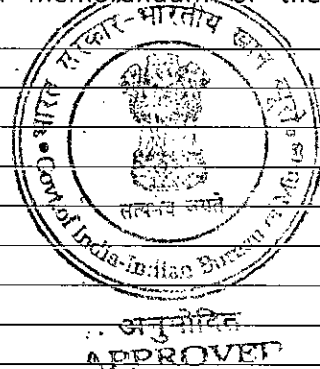 भारत सरकार-भारतीय खान ब्यूरो
सत्यमेव जयते
Govt of India-Indian Bureau of
अनुमोदित
APPROVED